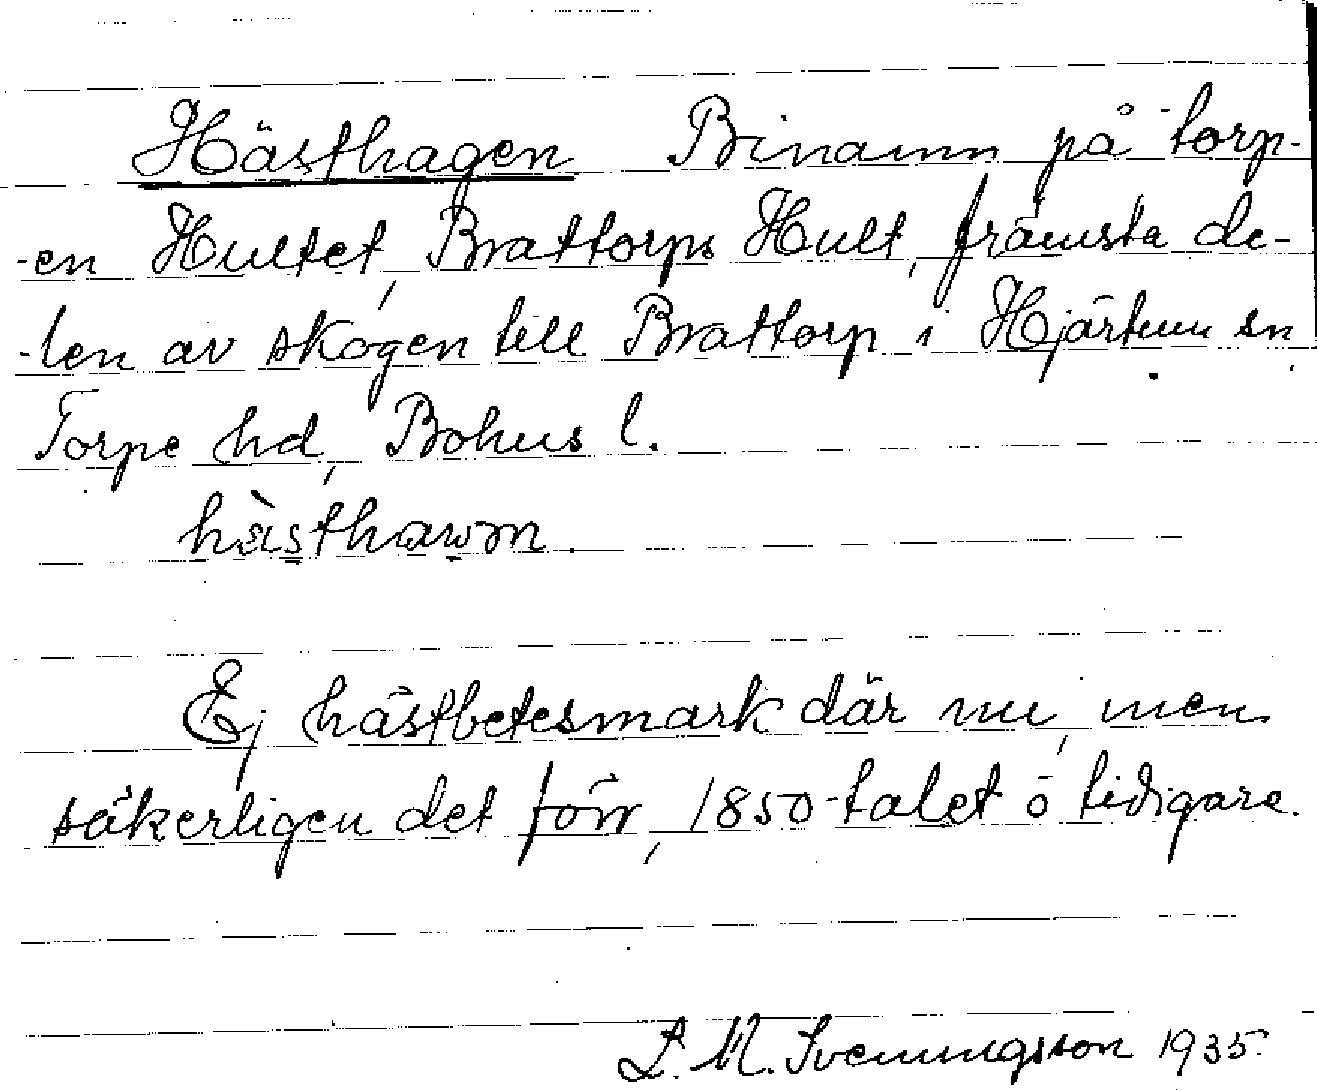 Hästhagen Binamn på torp-
-en Hultet, Brattorps Hult, främsta de-
-len av skogen till Brattorp i Hjärtum sn
Torpe hd, Bohus l.
Ej hästbetesmark där nu, men
säkerligen det förr, 1850-talet o tidigare.
L. M. Svenungsson 1935.